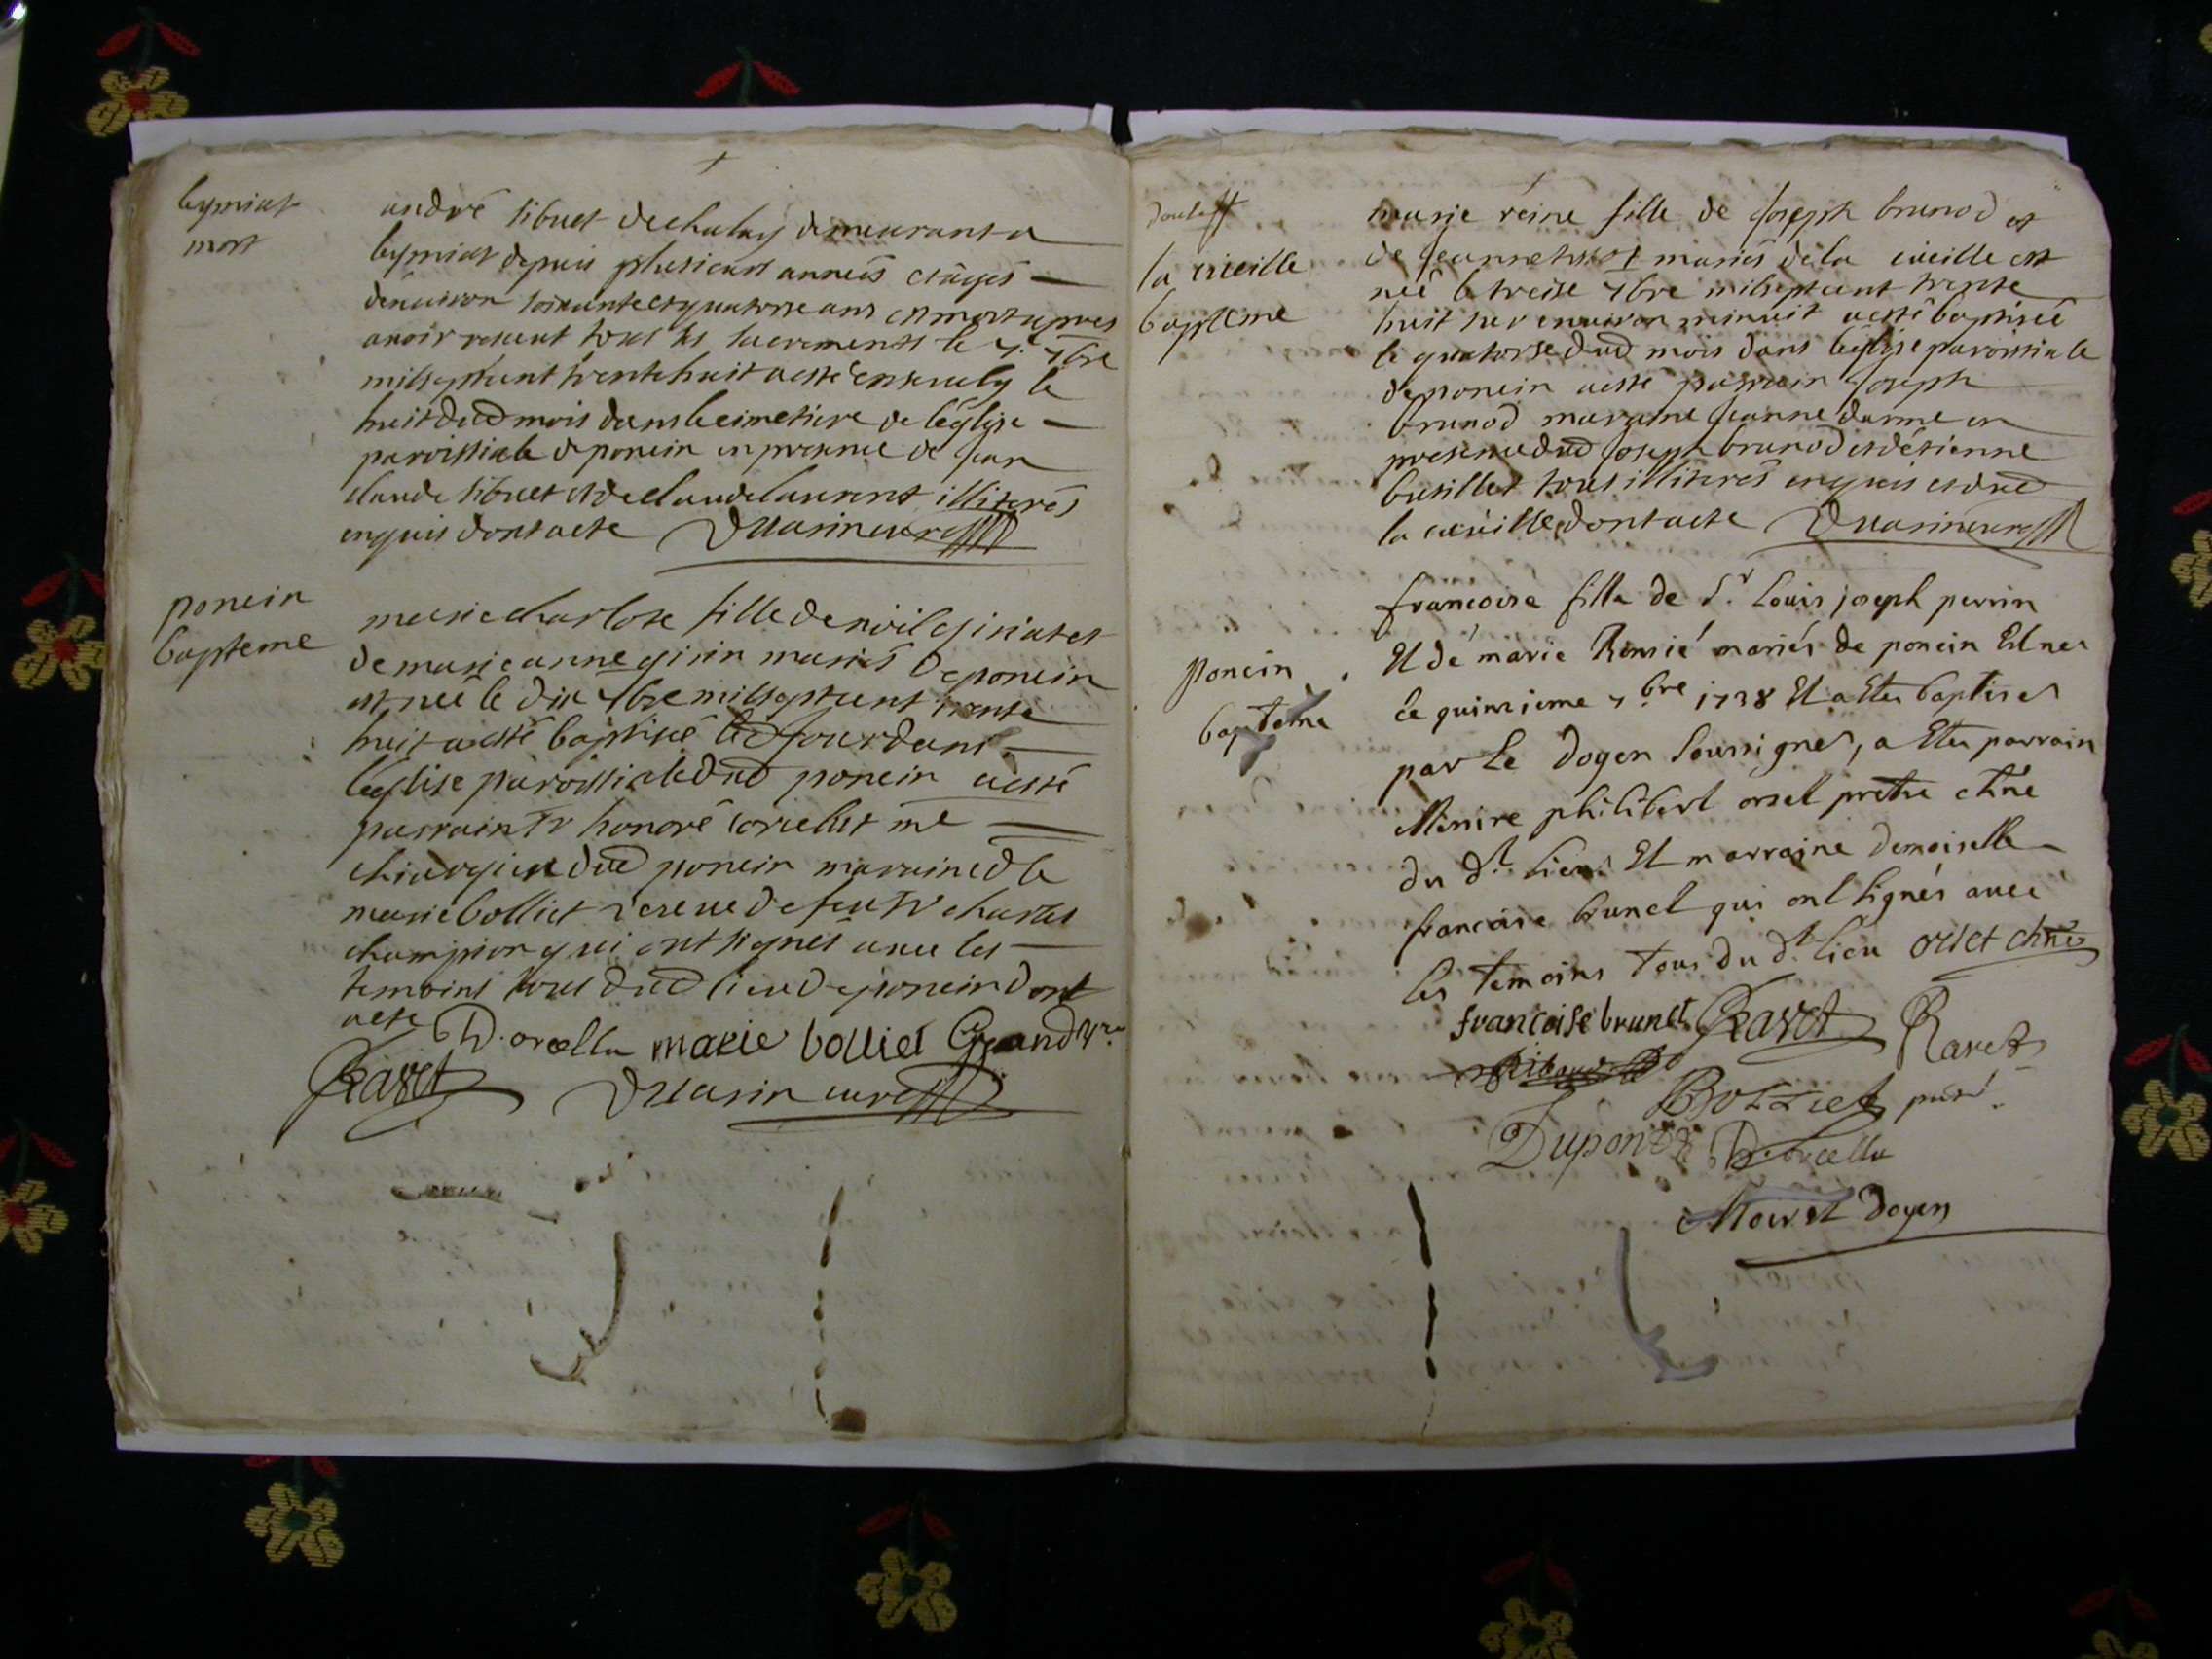 leymiat
mort
andré sibuet de chalay demeurant a
leymiat depuis plusieurs années et agés
denviron soixante et quatorse ans est mort apres
avoir reseut tous les sacrements le 7e 7bre
mil sept cent trente huit a esté ensevely le
huit dud mois dans le cimetiere de léglise
paroissiale de poncin en presence de jean
claude sibuet et de claude laurent illiterés
enquis dont acte D uarin curé
poncin
bapteme
marie charlote fille de noil
de marie anne girin mariés de poncin
est neé le dix 7bre mil sept cent trente
huit a esté baptiseé led jour dans
léglise paroissiale dud poncin a esté
parrain sr honoré me
chirurgien dud poncin maraine dlle
marie bolliet veseue de feu sr charles
champion qui ont signés avec les
temoins tous dud lieu de poncin dont
acte D. orcella marie bolliet Grand
Ravet D uarin curé
la cueille
bapteme
marie reine fille de joseph brunod et
de jeanne mariés de la cueille est
neé le treise 7bre mil sept cent trente
huit sur environ minuit a esté baptiseé
le quatorse dud mois dans léglise paroissiale
de poncin a esté parrain joseph
brunod maraine jeanne darme en
presence dud joseph brunod et détienne
busillet tous illiterés enquis et dud
la cueille dont acte D uarin curé
poncin
bapteme
francoise fille de Sr Louis joseph perrin
Et de marie mariés de poncin Est neé
le quinzieme 7bre 1738 Et a Eteé baptiseé
par Le Doyen Soussigneé, a Eteé parrain
Messire philibert orset pretre chne
du dt Lieu Et marraine Demoiselle
francoise brunet qui ont signés avec
les temoins tous du dt Lieu orset chne
francoise brunet Ravet Ravet
Bolliet
Dupont D. orcella
Doyen